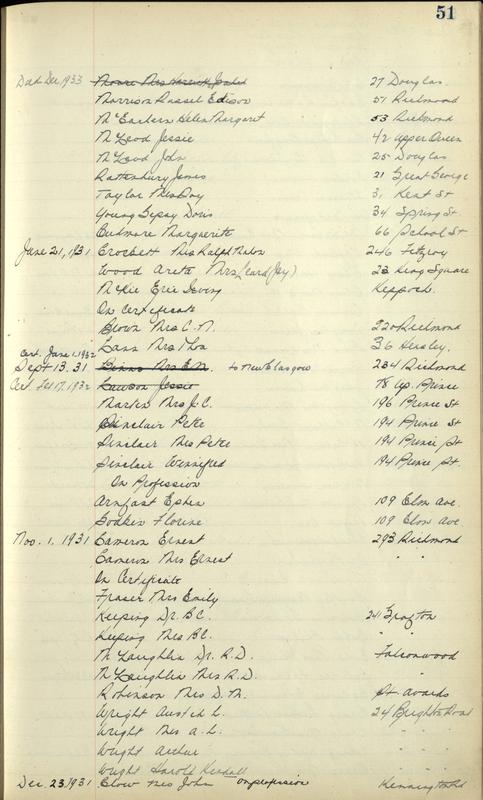 51
Ded Dec 1933 Moore Mrs 27 Douglas
Morrison Russel Edison 51 Richmond
McEachern Helen Margaret 53 Richmond
McLeod Jessie 42 Upper Queen
McLeod John 25 Douglas
Rattenbury James 21 Great George
Taylor Miss Doy 31 Kent St
Young Gipsy Doris 34 Spring St
Cudmore Marguerite 66 School St
June 21, 1931 Crockett Mrs Ralph 246 Fitzroy
Wood Areta Mrs (Card (Jay) 23 King Square
McKie Eric Keppoch
On Certificate
Brown Mrs C. N. 220 Richmond
Lann Mrs Thos 36 Hensley
Cert. June 1. 1932
Sept 13. 31 Binns Mrs E.N. to New Glasgow 234 Richmond
Cert Feb 17. 1932 Lawson Jessie 78 Up. Prince
Martin Mrs J. C. 196 Prince St
Sinclair Peter 194 Prince St
Sinclair Mrs Peter 194 Prince St
Sinclair Winnifred 194 Prince St.
On Profession
Arnfast Ephra 109 Elm Ave
Godkin Florine 109 Elm Ave.
Nov. 1. 1931 Cameron Ernest 293 Richmond
Cameron Mrs Ernest " "
On Certificate
Fraser Mrs Emily
Keeping Dr. B.C. 241 Grafton
Keeping Mrs B.C. "
McLaughlin Dr. R. D. Falconwood
McLaughlin Mrs R. D. "
Robinson Mrs D. M. St. Avards
Wright Austin L. 24 Brighton Road
Wright Mrs A. L. " "
Wright Arthur " "
Wright Harold Kendall " "
Dec. 23, 1931 Blow Mrs John On profession Kensington Rd